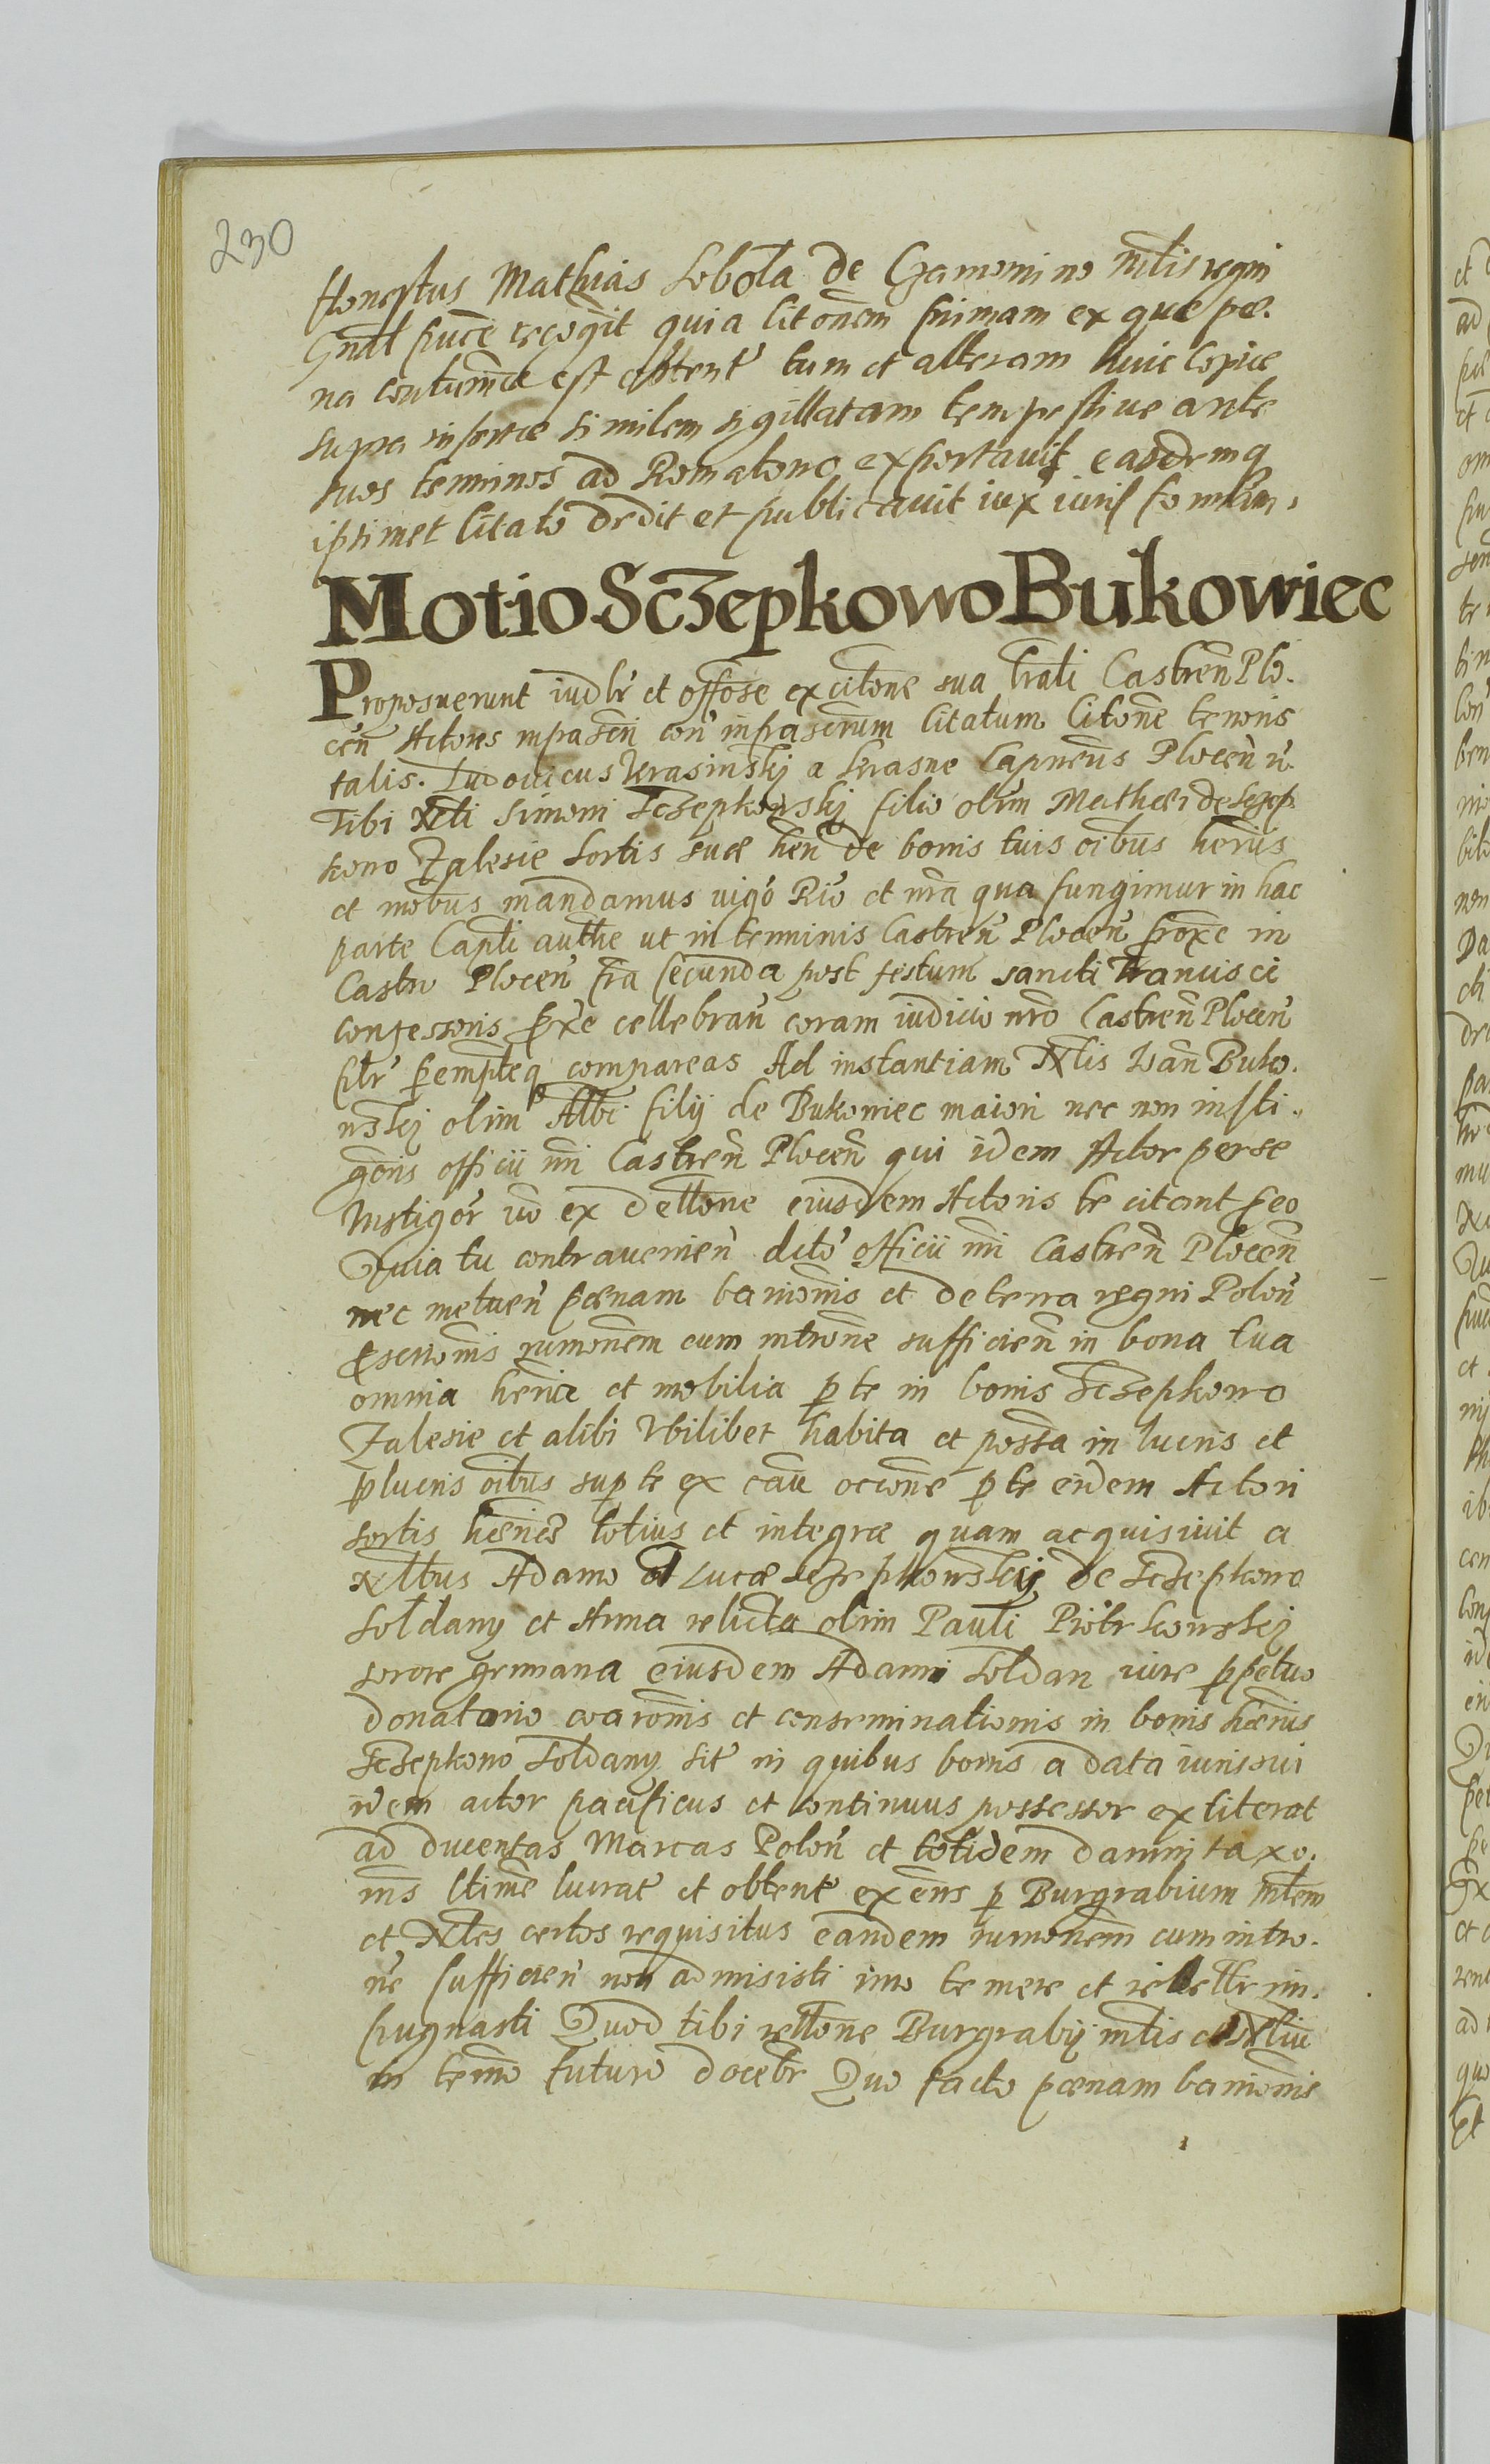 230
Honestus Mathias Sobota de Gamonino Mtlis regni
Gnal pure recognit quia litonem primam ex qua pæ.
na contumac est obtent tum et alteram huic copiæ
supra insertæ similem sigillatam tempestiue ante
suos terminos ad Romatowo exportauit eademq
ipsimet citato dedit et publicauit iux iuris formam.
Motio Sczepkowo Bukowiec
Proposuerunt iudlr et offose ex citone sua trali Castren Plo.
cen Actores infrascri con infrascrum citatum citone tenoris
talis. Ludouicus Krasinskÿ a Krasne Capneus Plocen
Tibi Nbli Simoni Sczepkowskÿ filio olim Mathæi de Sczep
kowo Zalesie sortis suæ hen de bonis tuis oibus heriis
et mobus mandamus uigo Rio et nra qua fungimur in hac
parte Capli authe ut in terminis Castren Plocen proxe in
Castro Plocen fra secunda post festum sancti Francisci
confessoris prxe cellebran coram iudicio nro Castren Plocen
pltr perempteq compareas Ad instantiam Nblis Joan Buko.
wskÿ olim Albi filÿ de Bukowiec maiori nec non insti.
goris officii nri Castren Plocen qui idem Actor per se
Instigor uo ex dellone eiusdem Actoris te citant peo
Quia tu contrauenien dcto officii nri Castren Plocen
nec metuen pænam banionis et de terra regni Polon
proscrionis rumonem cum introne sufficien in bona tua
omnia heria et mobilia p te in bonis Sczepkowo
Zalesie et alibi Vbilibet habita et possa in lucris et
p lucris oibus sup te ex cau occone p te eidem Actori
sortis hæriæ totius et integræ quam acquisiuit a
Nbbus Adamo et Luca Sczepkowskÿ de Sczepkowo
Soldany et Anna relicta olim Pauli Piotrkowskÿ
sorore germana eiusdem Adami Soldan iure ppetuo
donatorio coaronis et conseminationis in bonis hæriis
Sczepkowo Soldany sit in quibus bonis a data iuris sui
idem actor pacificus et continuus possessor extiterat
ad ducentas Marcas Polon et totidem damni taxo.
nis ltime lucrat et obtent exens p Burgrabium Mtlem
et Nbles certos requisitus eandem rumonem cum intro.
ne sufficien non admisisti imo temere et rebelle im.
pugnasti Quod tibi rellone Burgrabÿ mtlis et Nbliu
in termo futuro docebr Quo facto pænam banionis